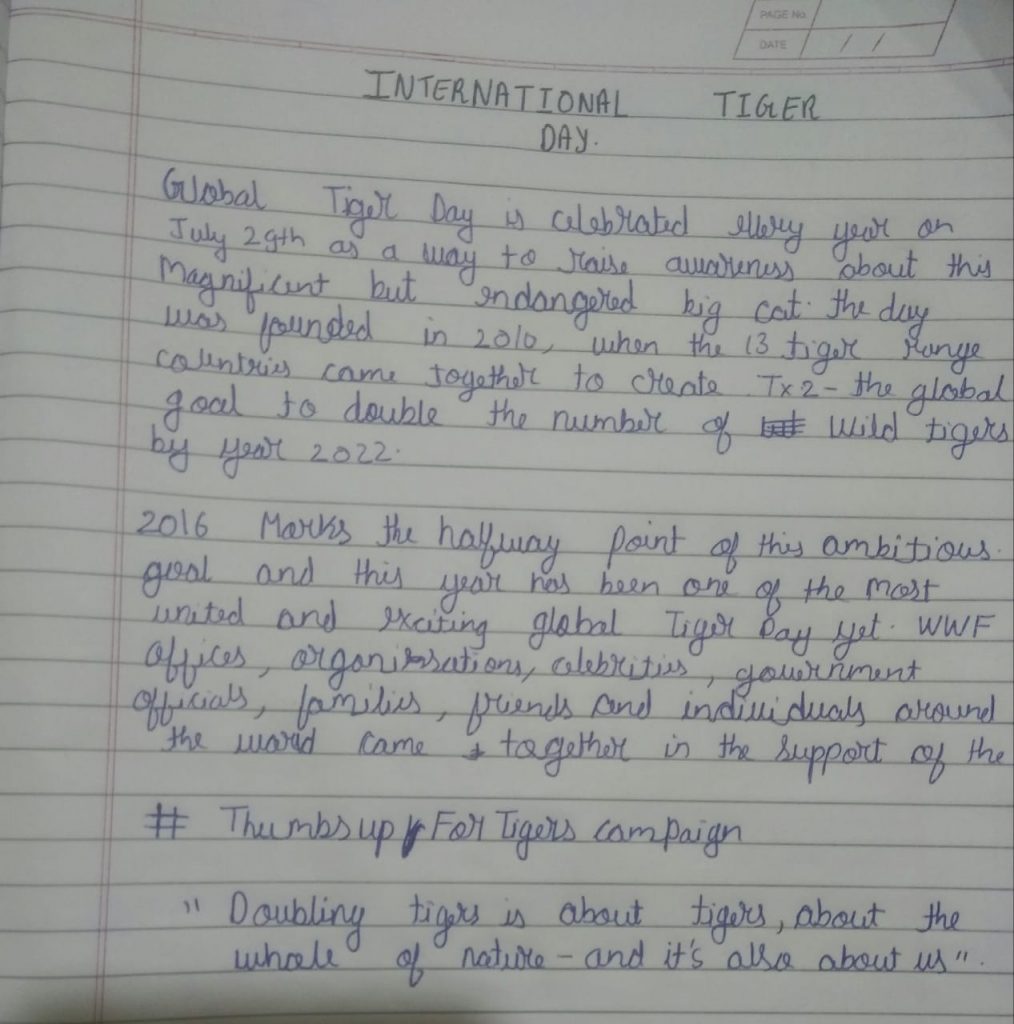 PAGE No.
DATE / /
INTERNATIONAL TIGER
DAY.
Global Tiger Day is celebrated every year on
July 29th as a way to raise awareness about this
Magnificent but endangered big cat. the day
was founded in 2010, when the 13 tiger range
countries came together to create Tx2 - the global
goal to double the number of wild tigers
by year 2022.
2016 Marks the halfway point of this ambitious.
goal and this year has been one of the most
united and exciting global Tiger Day yet. WWF
offices, organissations, celebrities, government
officials, families, friends and individuals around
the world came together in the support of the
# Thumbs up For Tigers campaign
" Doubling tigers is about tigers, about the
whole of nature - and it's also about us".